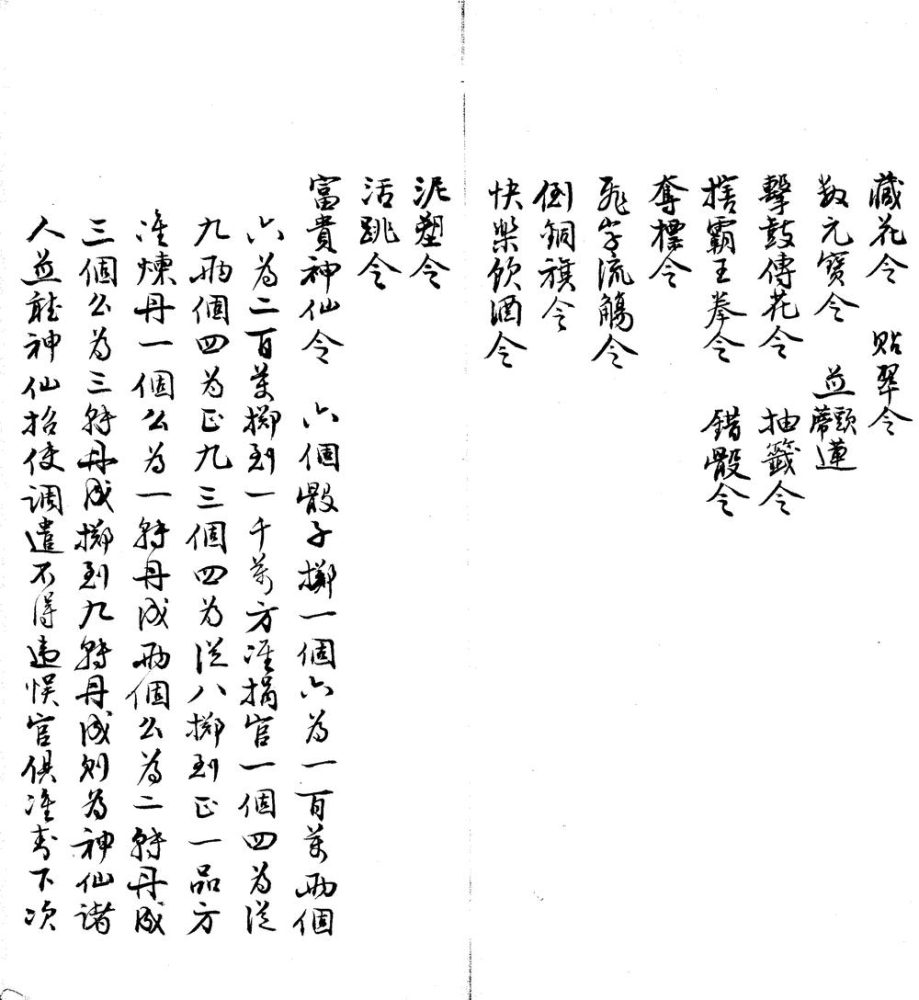 藏花令 貼翠令
數元寶令 並蒂頭蓮
擊鼓傳花令 抽籤令
搳霸王拳令 錯骰令
奪標令
飛字流觴令
倒銅旗令
快樂飲酒令
泥塑令
活跳令
富貴神仙令 六個骰子擲一個六為一百萬兩個
六為二百萬擲到一千萬方准捐官一個四為從
九兩個四為正九三個四為從八擲到正一品方
准煉丹一個么為一轉丹成兩個么為二轉丹成
三個么為三轉丹成擲到九轉丹成則為神仙諸
人並聽神仙招使調遣不得違悞官俱准考下次